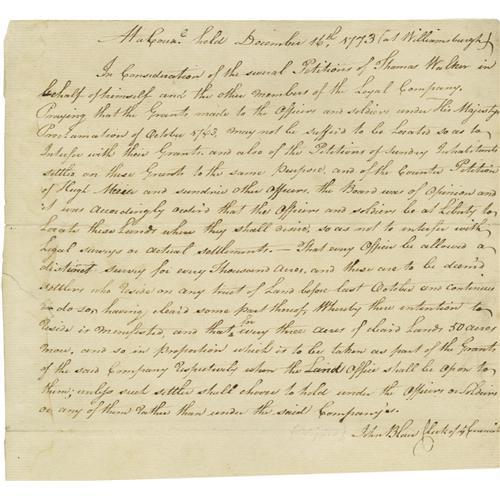 At a Counc.l held December 16th. 1773 (at Williamsburgh)
In Consideration of the several Petitions of Thomas Walker in
behalf of himself and the other members of the Loyal Company.
Praying that the Grants made to the Officers and soldiers under His Majestys
Proclamation of October 1763. may not be suffer'd to be Located so as to
Interfer with their Grants. and also of the Petitions of sundry Inhabitants
settled on those Grants to the same purpose, and of the Counter Petition
of Hugh Mercer and sundrie other Officers. the Board was of Opinion and
it was Accordingly order'd that the Officers and soldiers be at Liberty to
Locate these Lands where they shall desire, so as not to enterfer with
Legal surveys or actual settlements. — That every Officer be allowed a
distinct survey for every Thousand Acres, and those are to be deem'd
settlers who Reside on any tract of Land before last October and continues
to do so, having clear'd some part thereof, Whereby there intention to
Reside is Manifested, and that for every three Acres of clear'd Lands 50 acres
more, and so in proportion which is to be taken as part of the Grants
of the said Company Respectively when the Land Office shall be Open to
them; unless such settler shall choose to hold under the Officers or Soldiers
or any of them rather than under the said Company's.
John Blair Clerk of ye Council